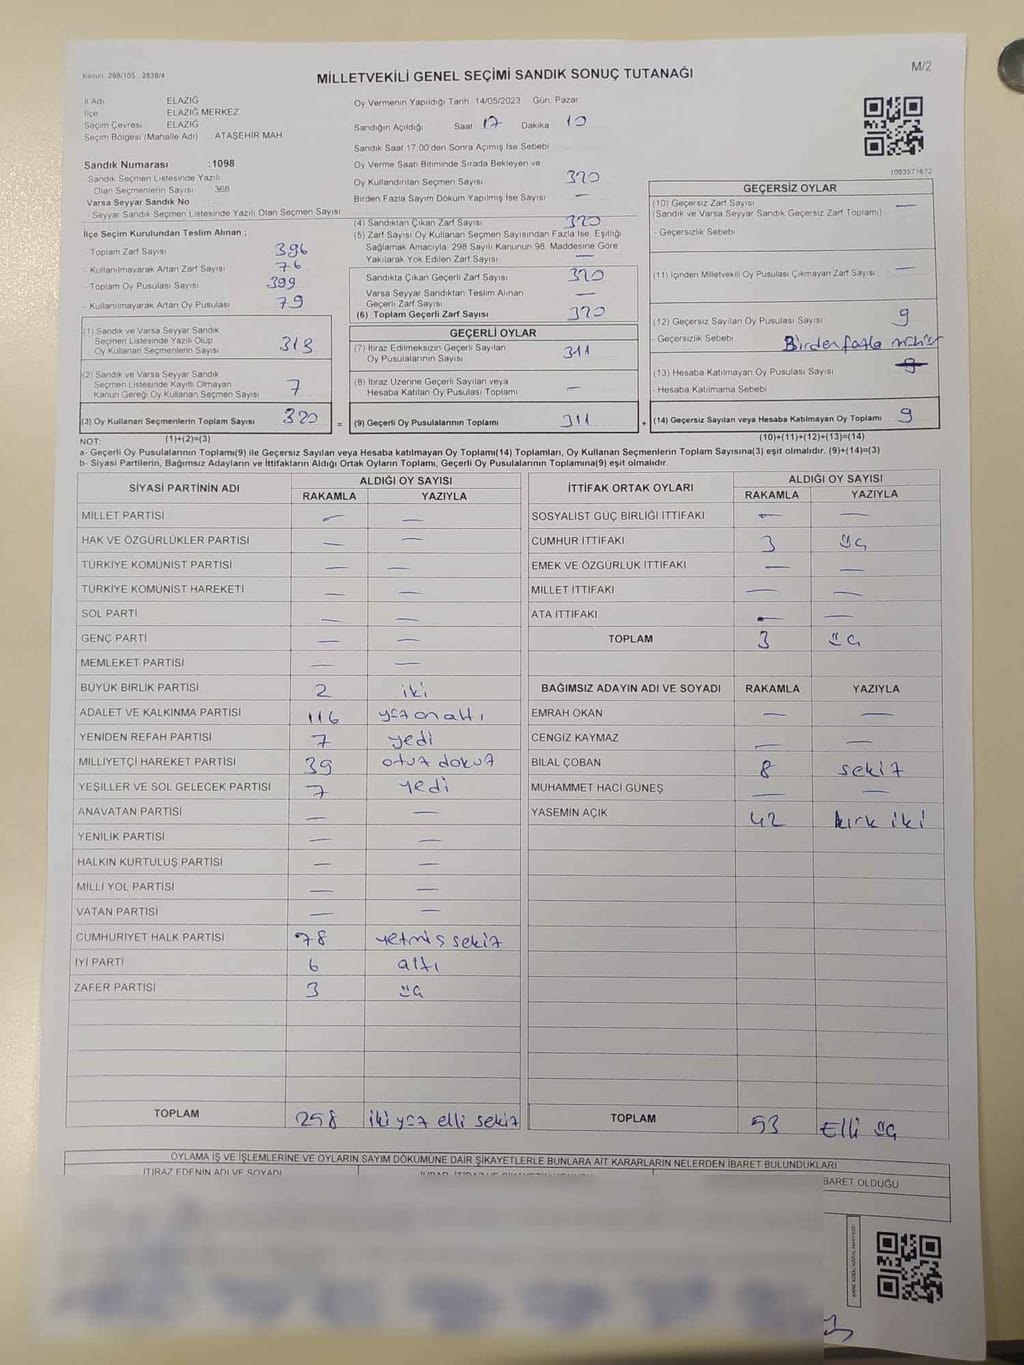 Kanun, 298/105 , 2839/4
MİLLETVEKİLİ GENEL SEÇİMİ SANDIK SONUÇ TUTANAĞI
M/2
İl Adı ELAZIĞ
İlçe ELAZIĞ MERKEZ
Seçim Çevresi ELAZIĞ
Seçim Bölgesi (Mahalle Adı) ATAŞEHİR MAH
Sandık Numarası :1098
Sandık Seçmen Listesinde Yazılı
Olan Seçmenlerin Sayısı 368
Varsa Seyyar Sandık No
Seyyar Sandık Seçmen Listesinde Yazılı Olan Seçmen Sayısı
İlçe Seçim Kurulundan Teslim Alınan ;
- Toplam Zarf Sayısı 396
- Kullanılmayarak Artan Zarf Sayısı 76
- Toplam Oy Pusulası Sayısı 399
- Kullanılmayarak Artan Oy Pusulası 79
(1) Sandık ve Varsa Seyyar Sandık
Seçmen Listesinde Yazılı Olup
Oy Kullanan Seçmenlerin Sayısı 313
(2) Sandık ve Varsa Seyyar Sandık
Seçmen Listesinde Kayıtlı Olmayan
Kanun Gereği Oy Kullanan Seçmen Sayısı 7
(3) Oy Kullanan Seçmenlerin Toplam Sayısı 320
Oy Vermenin Yapıldığı Tarih 14/05/2023 Gün: Pazar
Sandığın Açıldığı Saat 17 Dakika 10
Sandık Saat 17.00'den Sonra Açımış İse Sebebi
Oy Verme Saati Bitiminde Sırada Bekleyen ve
Oy Kullandırılan Seçmen Sayısı 320
Birden Fazla Sayım Döküm Yapılmış İse Sayısı —
(4) Sandıktan Çıkan Zarf Sayısı 320
(5) Zarf Sayısı Oy Kullanan Seçmen Sayısından Fazla İse, Eşitliği
Sağlamak Amacıyla, 298 Sayılı Kanunun 98. Maddesine Göre
Yakılarak Yok Edilen Zarf Sayısı —
Sandıkta Çıkan Geçerli Zarf Sayısı 320
Varsa Seyyar Sandıktan Teslim Alınan
Geçerli Zarf Sayısı —
(6) Toplam Geçerli Zarf Sayısı 320
GEÇERLİ OYLAR
(7) İtiraz Edilmeksizin Geçerli Sayılan
Oy Pusulalarının Sayısı 311
(8) İtiraz Üzerine Geçerli Sayılan veya
Hesaba Katılan Oy Pusulası Toplamı —
= (9) Geçerli Oy Pusulalarının Toplamı 311
1083571672
GEÇERSİZ OYLAR
(10) Geçersiz Zarf Sayısı —
(Sandık ve Varsa Seyyar Sandık Geçersiz Zarf Toplamı)
- Geçersizlik Sebebi
(11) İçinden Milletvekili Oy Pusulası Çıkmayan Zarf Sayısı —
(12) Geçersiz Sayılan Oy Pusulası Sayısı 9
- Geçersizlik Sebebi Birden fazla
(13) Hesaba Katılmayan Oy Pusulası Sayısı 9
- Hesaba Katılmama Sebebi
+ (14) Geçersiz Sayılan veya Hesaba Katılmayan Oy Toplamı 9
NOT: (1)+(2)=(3) (10)+(11)+(12)+(13)=(14)
a- Geçerli Oy Pusulalarının Toplamı(9) ile Geçersiz Sayılan veya Hesaba katılmayan Oy Toplamı(14) Toplamları, Oy Kullanan Seçmenlerin Toplam Sayısına(3) eşit olmalıdır. (9)+(14)=(3)
b- Siyasi Partilerin, Bağımsız Adayların ve İttifakların Aldığı Ortak Oyların Toplamı, Geçerli Oy Pusulalarının Toplamına(9) eşit olmalıdır.
SİYASİ PARTİNİN ADI ALDIĞI OY SAYISI
RAKAMLA YAZIYLA
MİLLET PARTİSİ — —
HAK VE ÖZGÜRLÜKLER PARTİSİ — —
TÜRKİYE KOMÜNİST PARTİSİ — —
TÜRKİYE KOMÜNİST HAREKETİ — —
SOL PARTİ — —
GENÇ PARTİ — —
MEMLEKET PARTİSİ — —
BÜYÜK BİRLİK PARTİSİ 2 iki
ADALET VE KALKINMA PARTİSİ 116 yüz on altı
YENİDEN REFAH PARTİSİ 7 yedi
MİLLİYETÇİ HAREKET PARTİSİ 39 otuz dokuz
YEŞİLLER VE SOL GELECEK PARTİSİ 7 yedi
ANAVATAN PARTİSİ — —
YENİLİK PARTİSİ — —
HALKIN KURTULUŞ PARTİSİ — —
MİLLİ YOL PARTİSİ — —
VATAN PARTİSİ — —
CUMHURİYET HALK PARTİSİ 78 yetmiş sekiz
İYİ PARTİ 6 altı
ZAFER PARTİSİ 3 üç
TOPLAM 258 iki yüz elli sekiz
İTTİFAK ORTAK OYLARI ALDIĞI OY SAYISI
RAKAMLA YAZIYLA
SOSYALİST GÜÇ BİRLİĞİ İTTİFAKI — —
CUMHUR İTTİFAKI 3 üç
EMEK VE ÖZGÜRLÜK İTTİFAKI — —
MİLLET İTTİFAKI — —
ATA İTTİFAKI — —
TOPLAM 3 üç
BAĞIMSIZ ADAYIN ADI VE SOYADI RAKAMLA YAZIYLA
EMRAH OKAN — —
CENGİZ KAYMAZ — —
BİLAL ÇOBAN 8 sekiz
MUHAMMET HACİ GÜNEŞ — —
YASEMİN AÇIK 42 kırk iki
TOPLAM 53 Elli üç
OYLAMA İŞ VE İŞLEMLERİNE VE OYLARIN SAYIM DÖKÜMÜNE DAİR ŞİKAYETLERLE BUNLARA AİT KARARLARIN NELERDEN İBARET BULUNDUKLARI
İTİRAZ EDENİN ADI VE SOYADI
BARET OLDUĞU